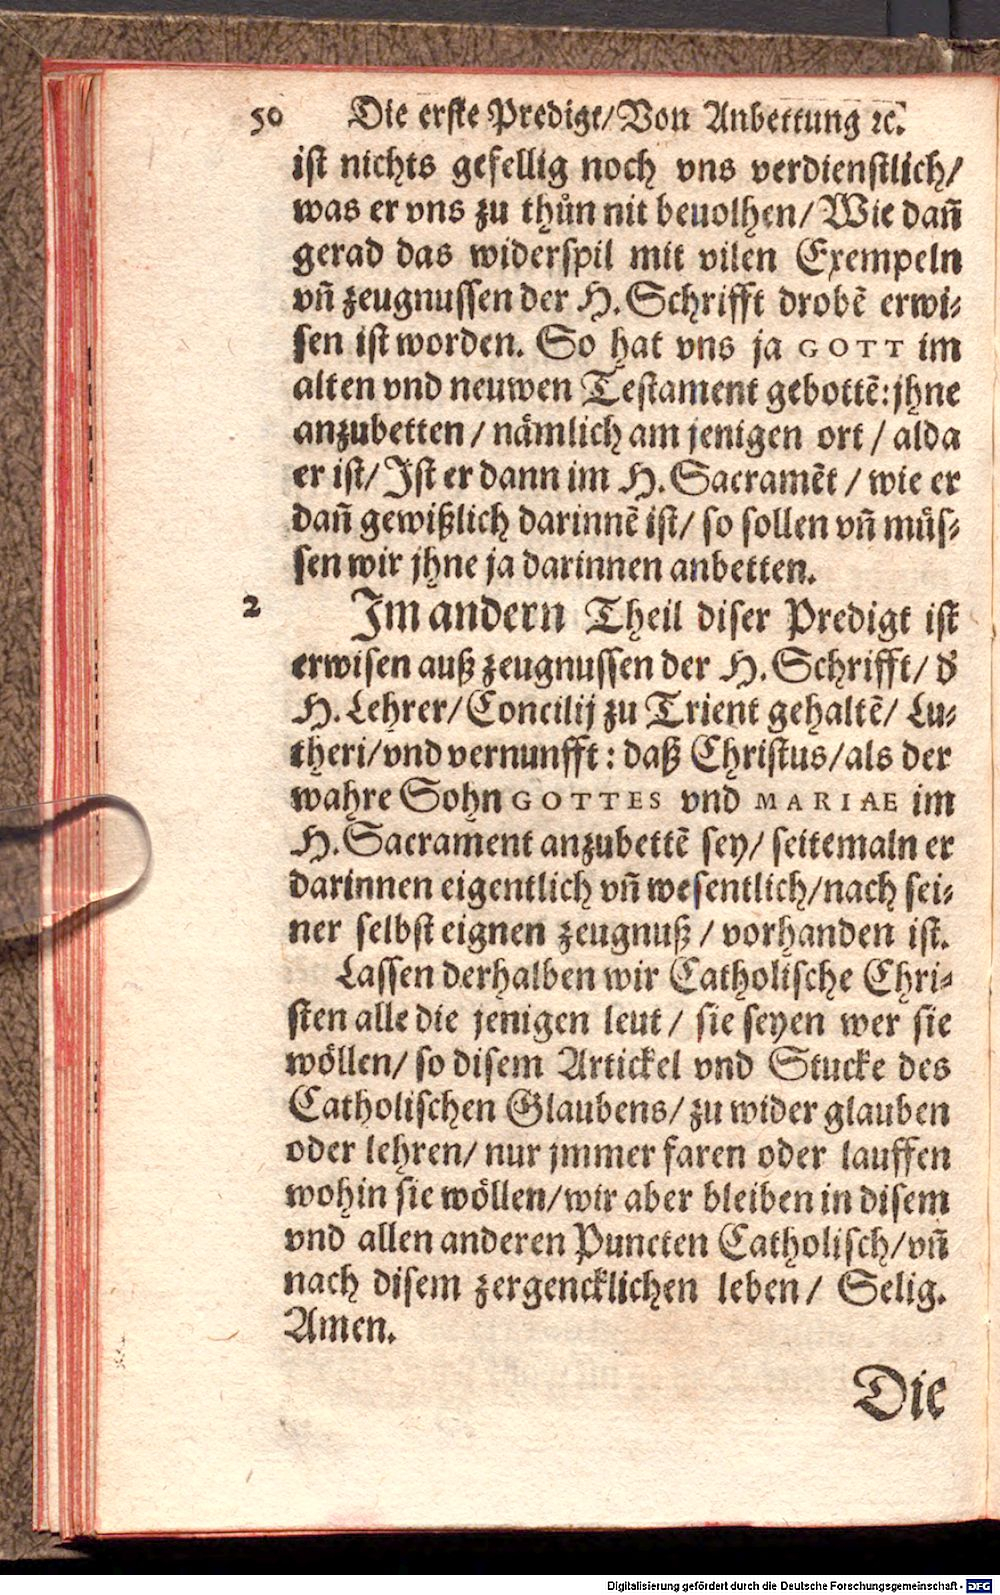 50 Die erste Predigt/Von Anbettung ꝛc.
ist nichts gefellig noch vns verdienstlich/
was er vns zu thůn nit beuolhen/ Wie dañ
gerad das widerspil mit vilen Exempeln
vñ zeugnussen der H. Schrifft drobẽ erwi-
sen ist worden. So hat vns ja GOTT im
alten vnd neuwen Testament gebottẽ: jhne
anzubetten / nämlich am jenigen ort / alda
er ist/ Ist er dann im H. Sacramẽt / wie er
dañ gewißlich darinnẽ ist/ so sollen vñ müs-
sen wir jhne ja darinnen anbetten.
2 Im andern Theil diser Predigt ist
erwisen auß zeugnussen der H. Schrifft/ d̃
H. Lehrer/ Concilij zu Trient gehaltẽ/ Lu-
theri/ vnd vernunfft: daß Christus/ als der
wahre Sohn GOTTES vnd MARIAE im
H. Sacrament anzubettẽ sey/ seitemaln er
darinnen eigentlich vñ wesentlich/ nach sei-
ner selbst eignen zeugnuß / vorhanden ist.
Lassen derhalben wir Catholische Chri-
sten alle die jenigen leut / sie seyen wer sie
wöllen/ so disem Artickel vnd Stucke des
Catholischen Glaubens/ zu wider glauben
oder lehren/ nur jmmer faren oder lauffen
wohin sie wöllen/ wir aber bleiben in disem
vnd allen anderen Puncten Catholisch/ vñ
nach disem zergencklichen leben/ Selig.
Amen.
Die
Digitalisierung gefördert durch die Deutsche Forschungsgemeinschaft - DFG